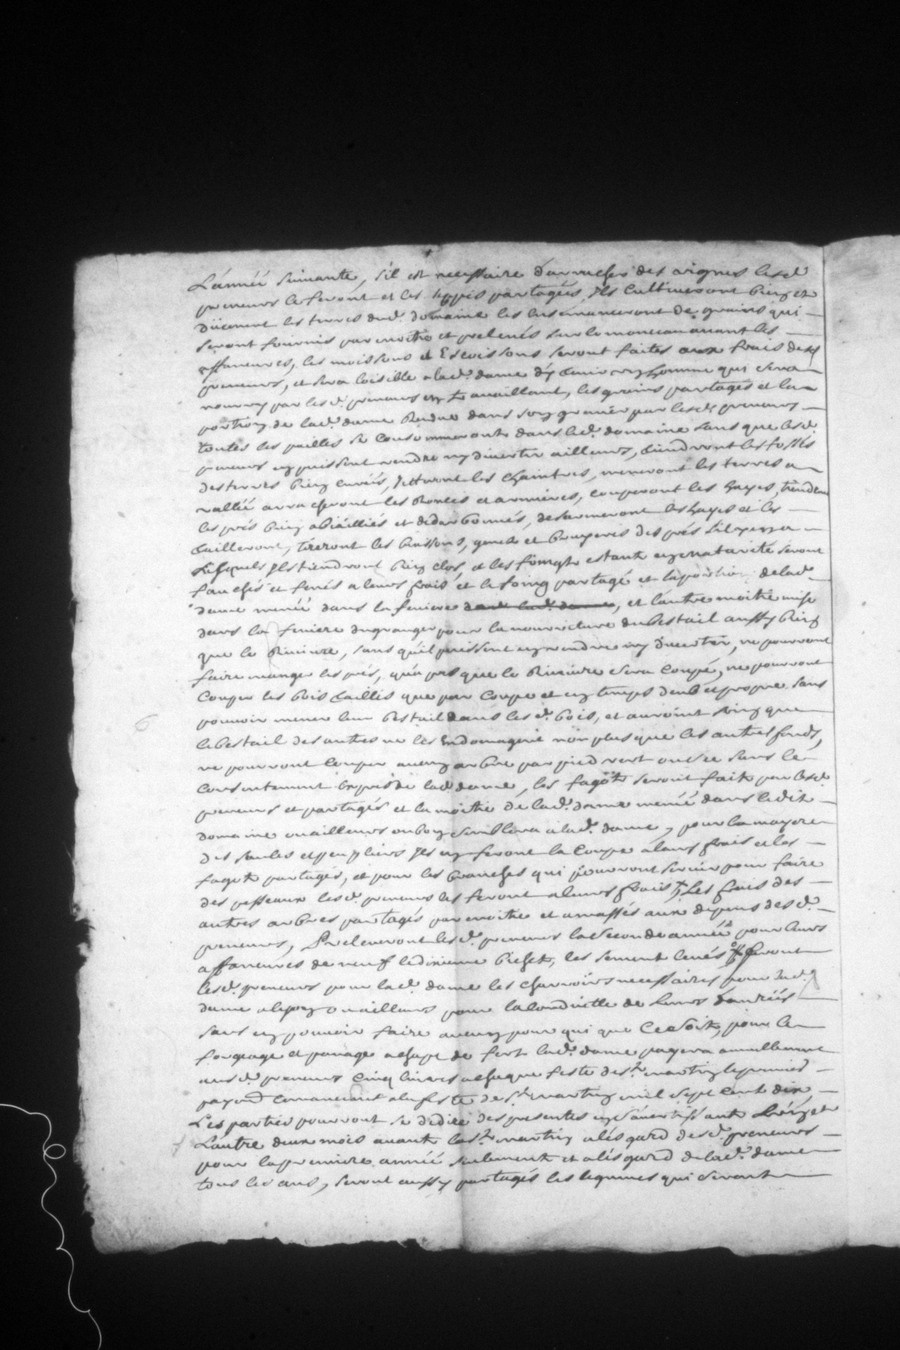 L'année suivante, s'il est necessaire d'arracher des vignes lesd.
preneurs le feront et les seppes partagées, Ils cultiveront bien et
duement les terres dud. domaine les ensemenceront de grains qui
seront fournis par moitié et prelevés sur le monceau avant les
affaneures, les moissons et Escoissons seront faites aux frais desd.
preneurs, et sera loisible a lad. dame d'y tenir un homme qui sera
nourry par les d. preneurs en travaillant, les grains partagés et la
portion de lad. dame rendue dans son grenier par lesd. preneurs
toutes les pailles se consommeront dans led. domaine sans que lesd.
preneurs en puissent vendre ny divertir ailleurs, tiendront les fossés
des terres bien curés, les chaintres, meneront les terres a
vallée arracheront les Ronces et , couperont les hayes, tiendront
les prés bien et , les hayes et les
tailleront, tireront les buissons, et des prés s'il y en a
lesquels Ils tiendront bien clos, et les foings estant en maturité seront
fauchés et fenés a leurs frais et le foing partagé et la portion de lad.
dame menée dans la feniere , et l'autre moitié mise
dans la feniere du granger pour la nourriture du bestail aussy bien
que le Riviere, sans qu'il puissent en vendre ny divertir, ne pourront
faire manger les prés, qu'apres que le Riviere sera coupé, ne pourront
couper les bois taillis que par coupe et en temps deub et propre sans
pouvoir mener leur bestail dans les d. bois, et auront soin que
le bestail des autres ne les Endomagent non plus que les autres fonds,
ne pourront couper aucun arbre par pied vert ou sec sans le
consentement exprès de lad. dame, les fagots seront fait par lesd.
preneurs et partagés et la moitié de lad. dame menée dans ledit
domaine ou ailleurs ou bon semblera a lad. dame, pour la
des saules et peupliers Ils en feront la coupe a leurs frais et les
fagots partagés, et pour les branches qui pourront servir pour faire
des pesseaux lesd. preneurs les feront a leurs frais, les frais des
autres arbres partagés par moitié et amassés aux depens des d.
preneurs, Preleveront les d. preneurs la seconde année pour leurs
affaneures de neuf le dixieme bichet, les semens levés feront
les d. preneurs pour lad. dame les charrois necessaires pour lad.
dame a ou ailleurs pour la conduitte de leurs danrées
sans en pouvoir faire aucun pour qui que ce soit, pour le
forgeage et de fert lad. dame payera annuellement
aus d. preneurs cinq livres a chaque feste de st. martin le premier
payement commencant a la feste de st. martin mil sept cent dix
Les parties pourront se dedire des presentes en s'avertissant l'un et
L'autre deux mois avant la st. martin a l'esgard des d. preneurs
pour la premiere année seulement et a l'esgard de lad. dame
tous les ans, seront aussy partagés les legumes qui seront